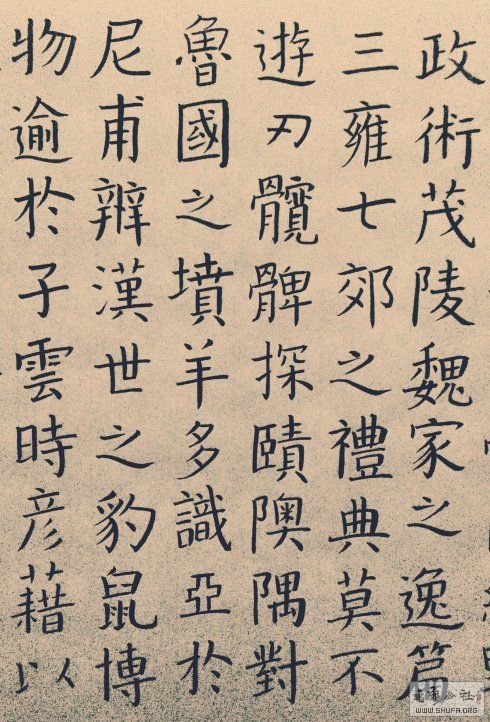 政術茂陵魏家之逸篇
三雍七郊之禮典莫不
遊刃髖髀探賾隩隅對
魯國之墳羊多識亞於
尼甫辨漢世之豹鼠博
物逾於子雲時彥藉以
WWW.SHUFA.ORG